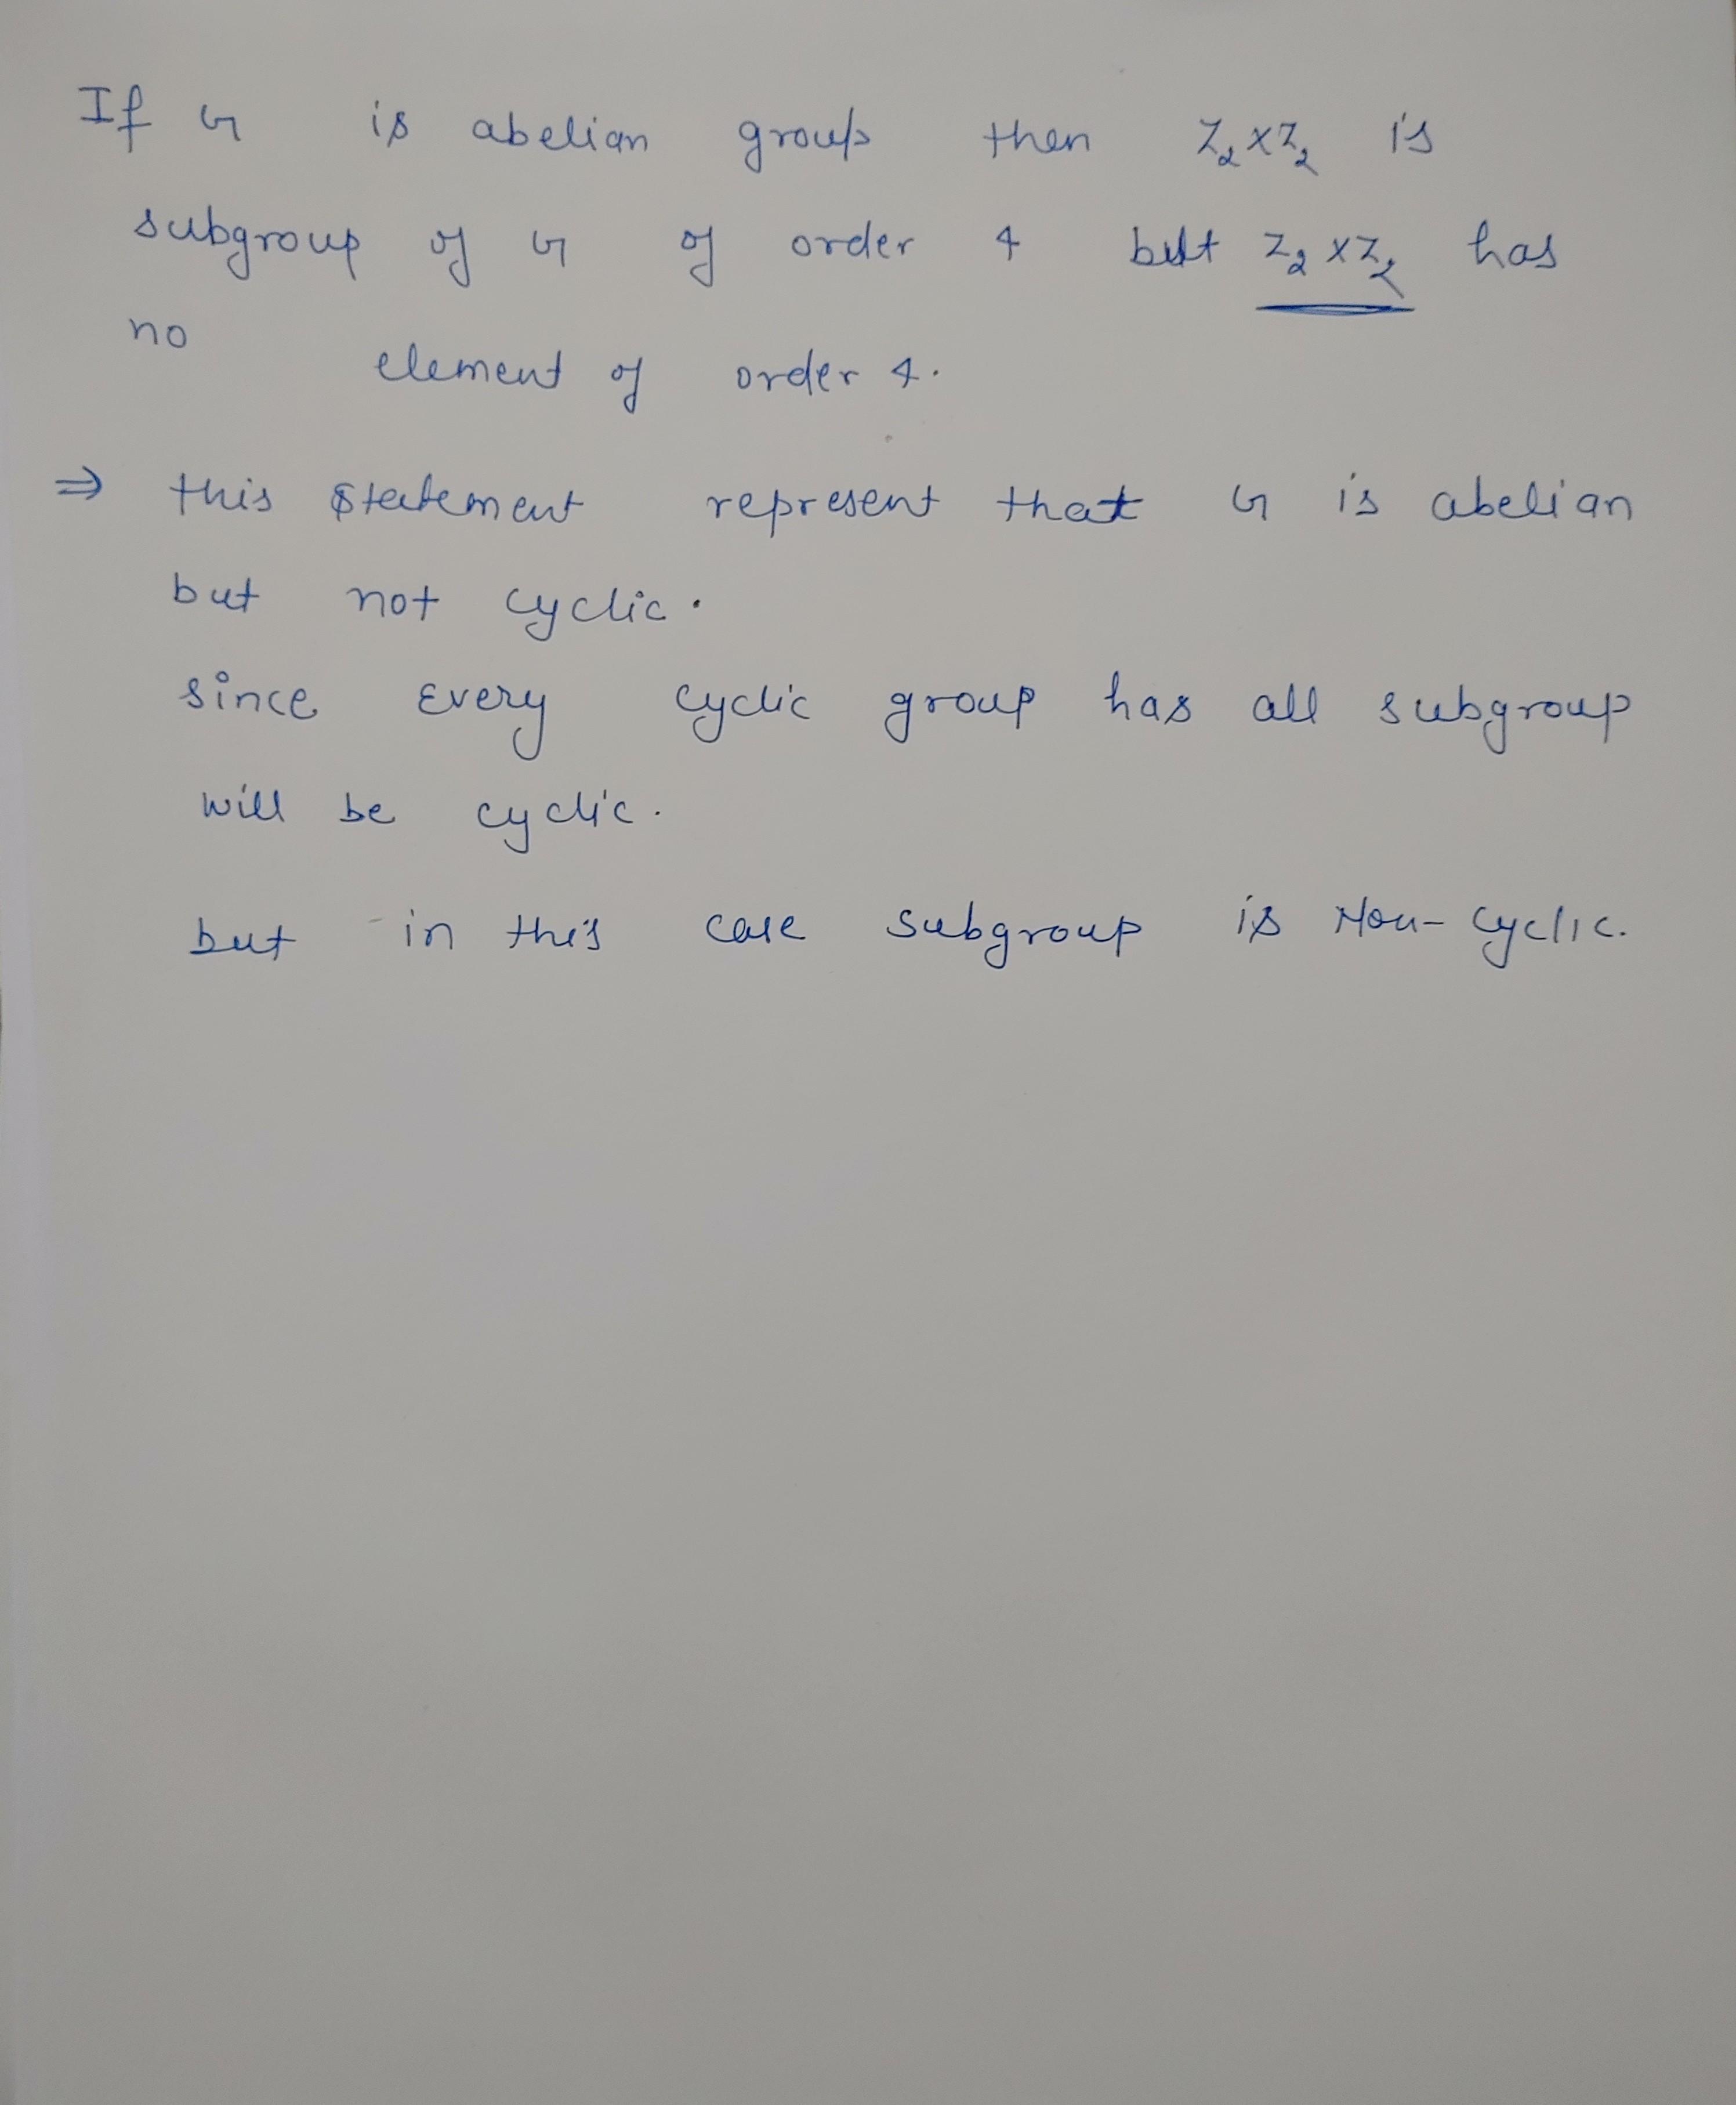 If G is abelian group then Z₂×Z₂ is
subgroup of G of order 4 but Z₂×Z₂ has
no
element of order 4.
⇒ this statement represent that G is abelian
but not cyclic.
since Every cyclic group has all subgroup
will be cyclic.
but in this case subgroup is Non-cyclic.